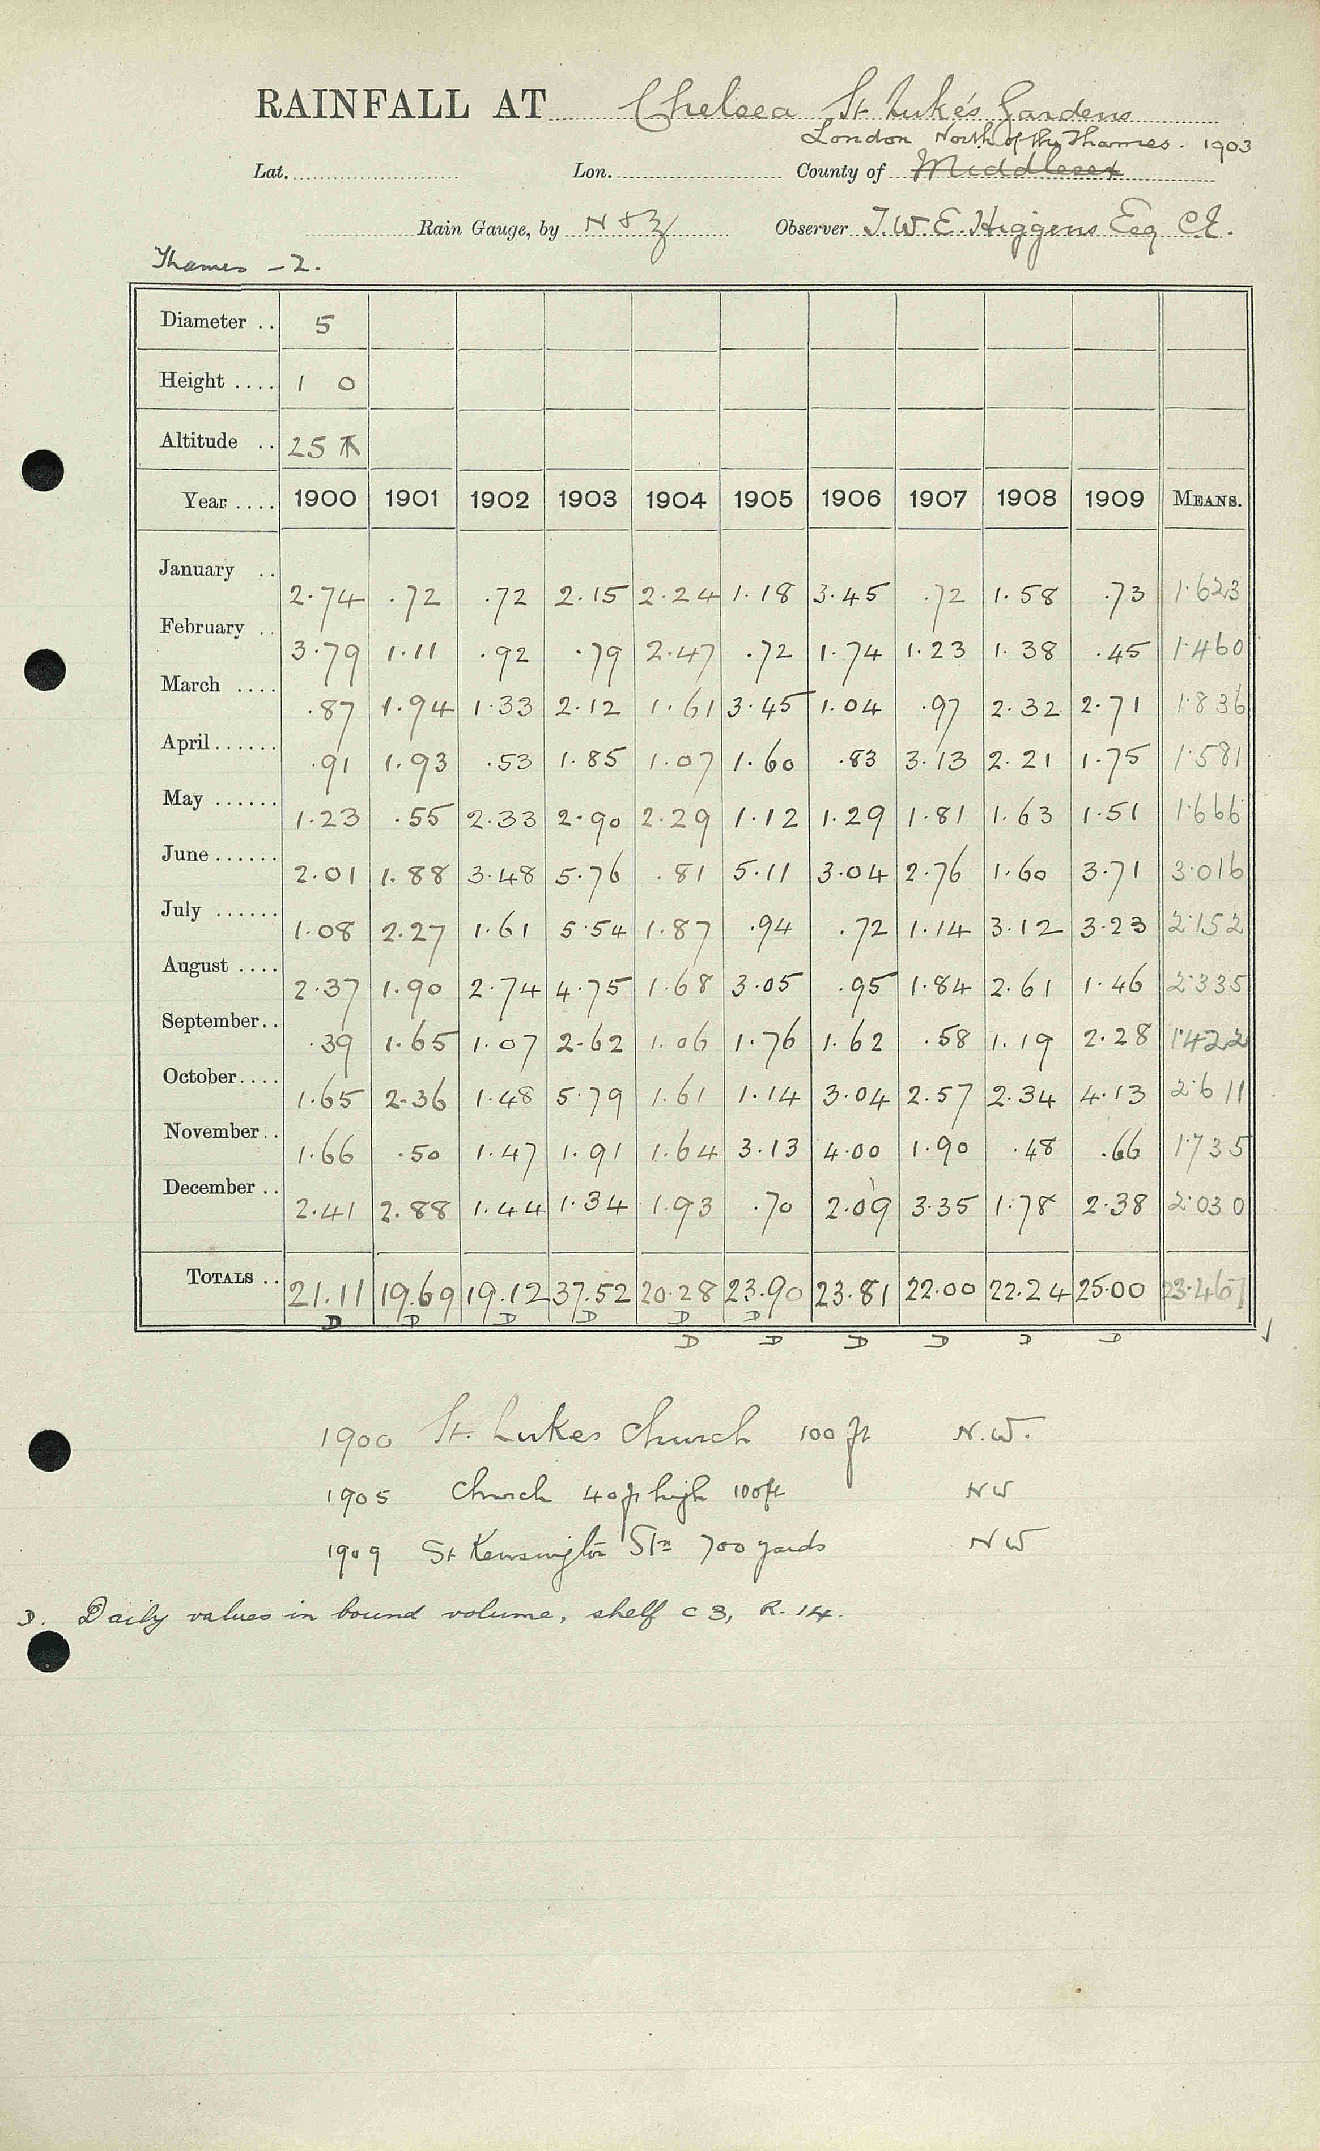 RAINFALL AT Chelsea St Luke's Gardens
London North of the Thames. 1903
Lat. Lon. County of Middlesex
Rain Gauge, by N & Z Observer J. W. E. Higgens Esq C.E.
Thames - 2.
Diameter .. 5
Height .... 1 0
Altitude .. 25
Year .... 1900 1901 1902 1903 1904 1905 1906 1907 1908 1909 MEANS.
January .. 2.74 .72 .72 2.15 2.24 1.18 3.45 .72 1.58 .73 1.623
February .. 3.79 1.11 .92 .79 2.47 .72 1.74 1.23 1.38 .45 1.460
March .... .87 1.94 1.33 2.12 1.61 3.45 1.04 .97 2.32 2.71 1.836
April ...... .91 1.93 .53 1.85 1.07 1.60 .83 3.13 2.21 1.75 1.581
May ...... 1.23 .55 2.33 2.90 2.29 1.12 1.29 1.81 1.63 1.51 1.666
June ...... 2.01 1.88 3.48 5.76 .81 5.11 3.04 2.76 1.60 3.71 3.016
July ...... 1.08 2.27 1.61 5.54 1.87 .94 .72 1.14 3.12 3.23 2.152
August .... 2.37 1.90 2.74 4.75 1.68 3.05 .95 1.84 2.61 1.46 2.335
September.. .39 1.65 1.07 2.62 1.06 1.76 1.62 .58 1.19 2.28 1.422
October.... 1.65 2.36 1.48 5.79 1.61 1.14 3.04 2.57 2.34 4.13 2.611
November.. 1.66 .50 1.47 1.91 1.64 3.13 4.00 1.90 .48 .66 1.735
December .. 2.41 2.88 1.44 1.34 1.93 .70 2.09 3.35 1.78 2.38 2.030
TOTALS .. 21.11 19.69 19.12 37.52 20.28 23.90 23.81 22.00 22.24 25.00 23.467
D D D D D D
D D D D D D
1900 St. Lukes Church 100 ft N.W.
1905 Church 40 ft high 100ft NW
1909 St Kensington Stn 700 yards NW
D. Daily values in bound volume, shelf C 3, R. 14.